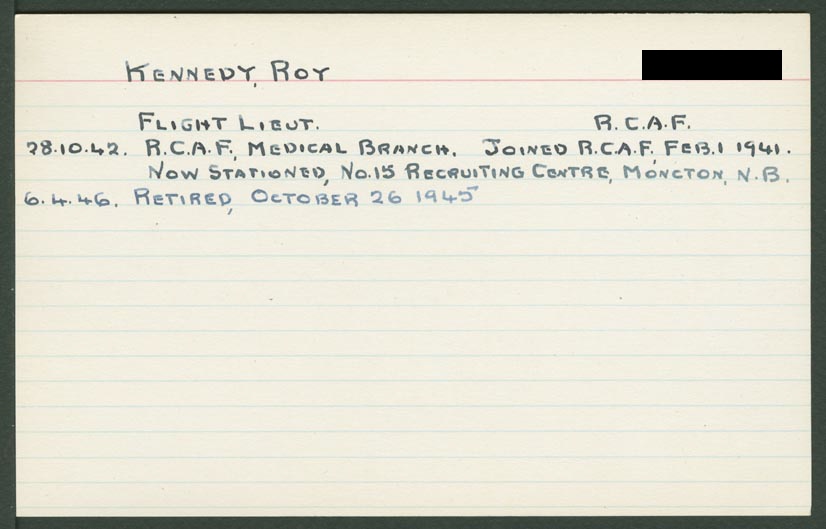 KENNEDY, ROY
FLIGHT LIEUT. R.C.A.F.
28.10.42. R.C.A.F., MEDICAL BRANCH. JOINED R.C.A.F, FEB.1 1941.
NOW STATIONED, NO.15 RECRUITING CENTRE, MONCTON, N.B.
6.4.46. RETIRED, OCTOBER 26 1945